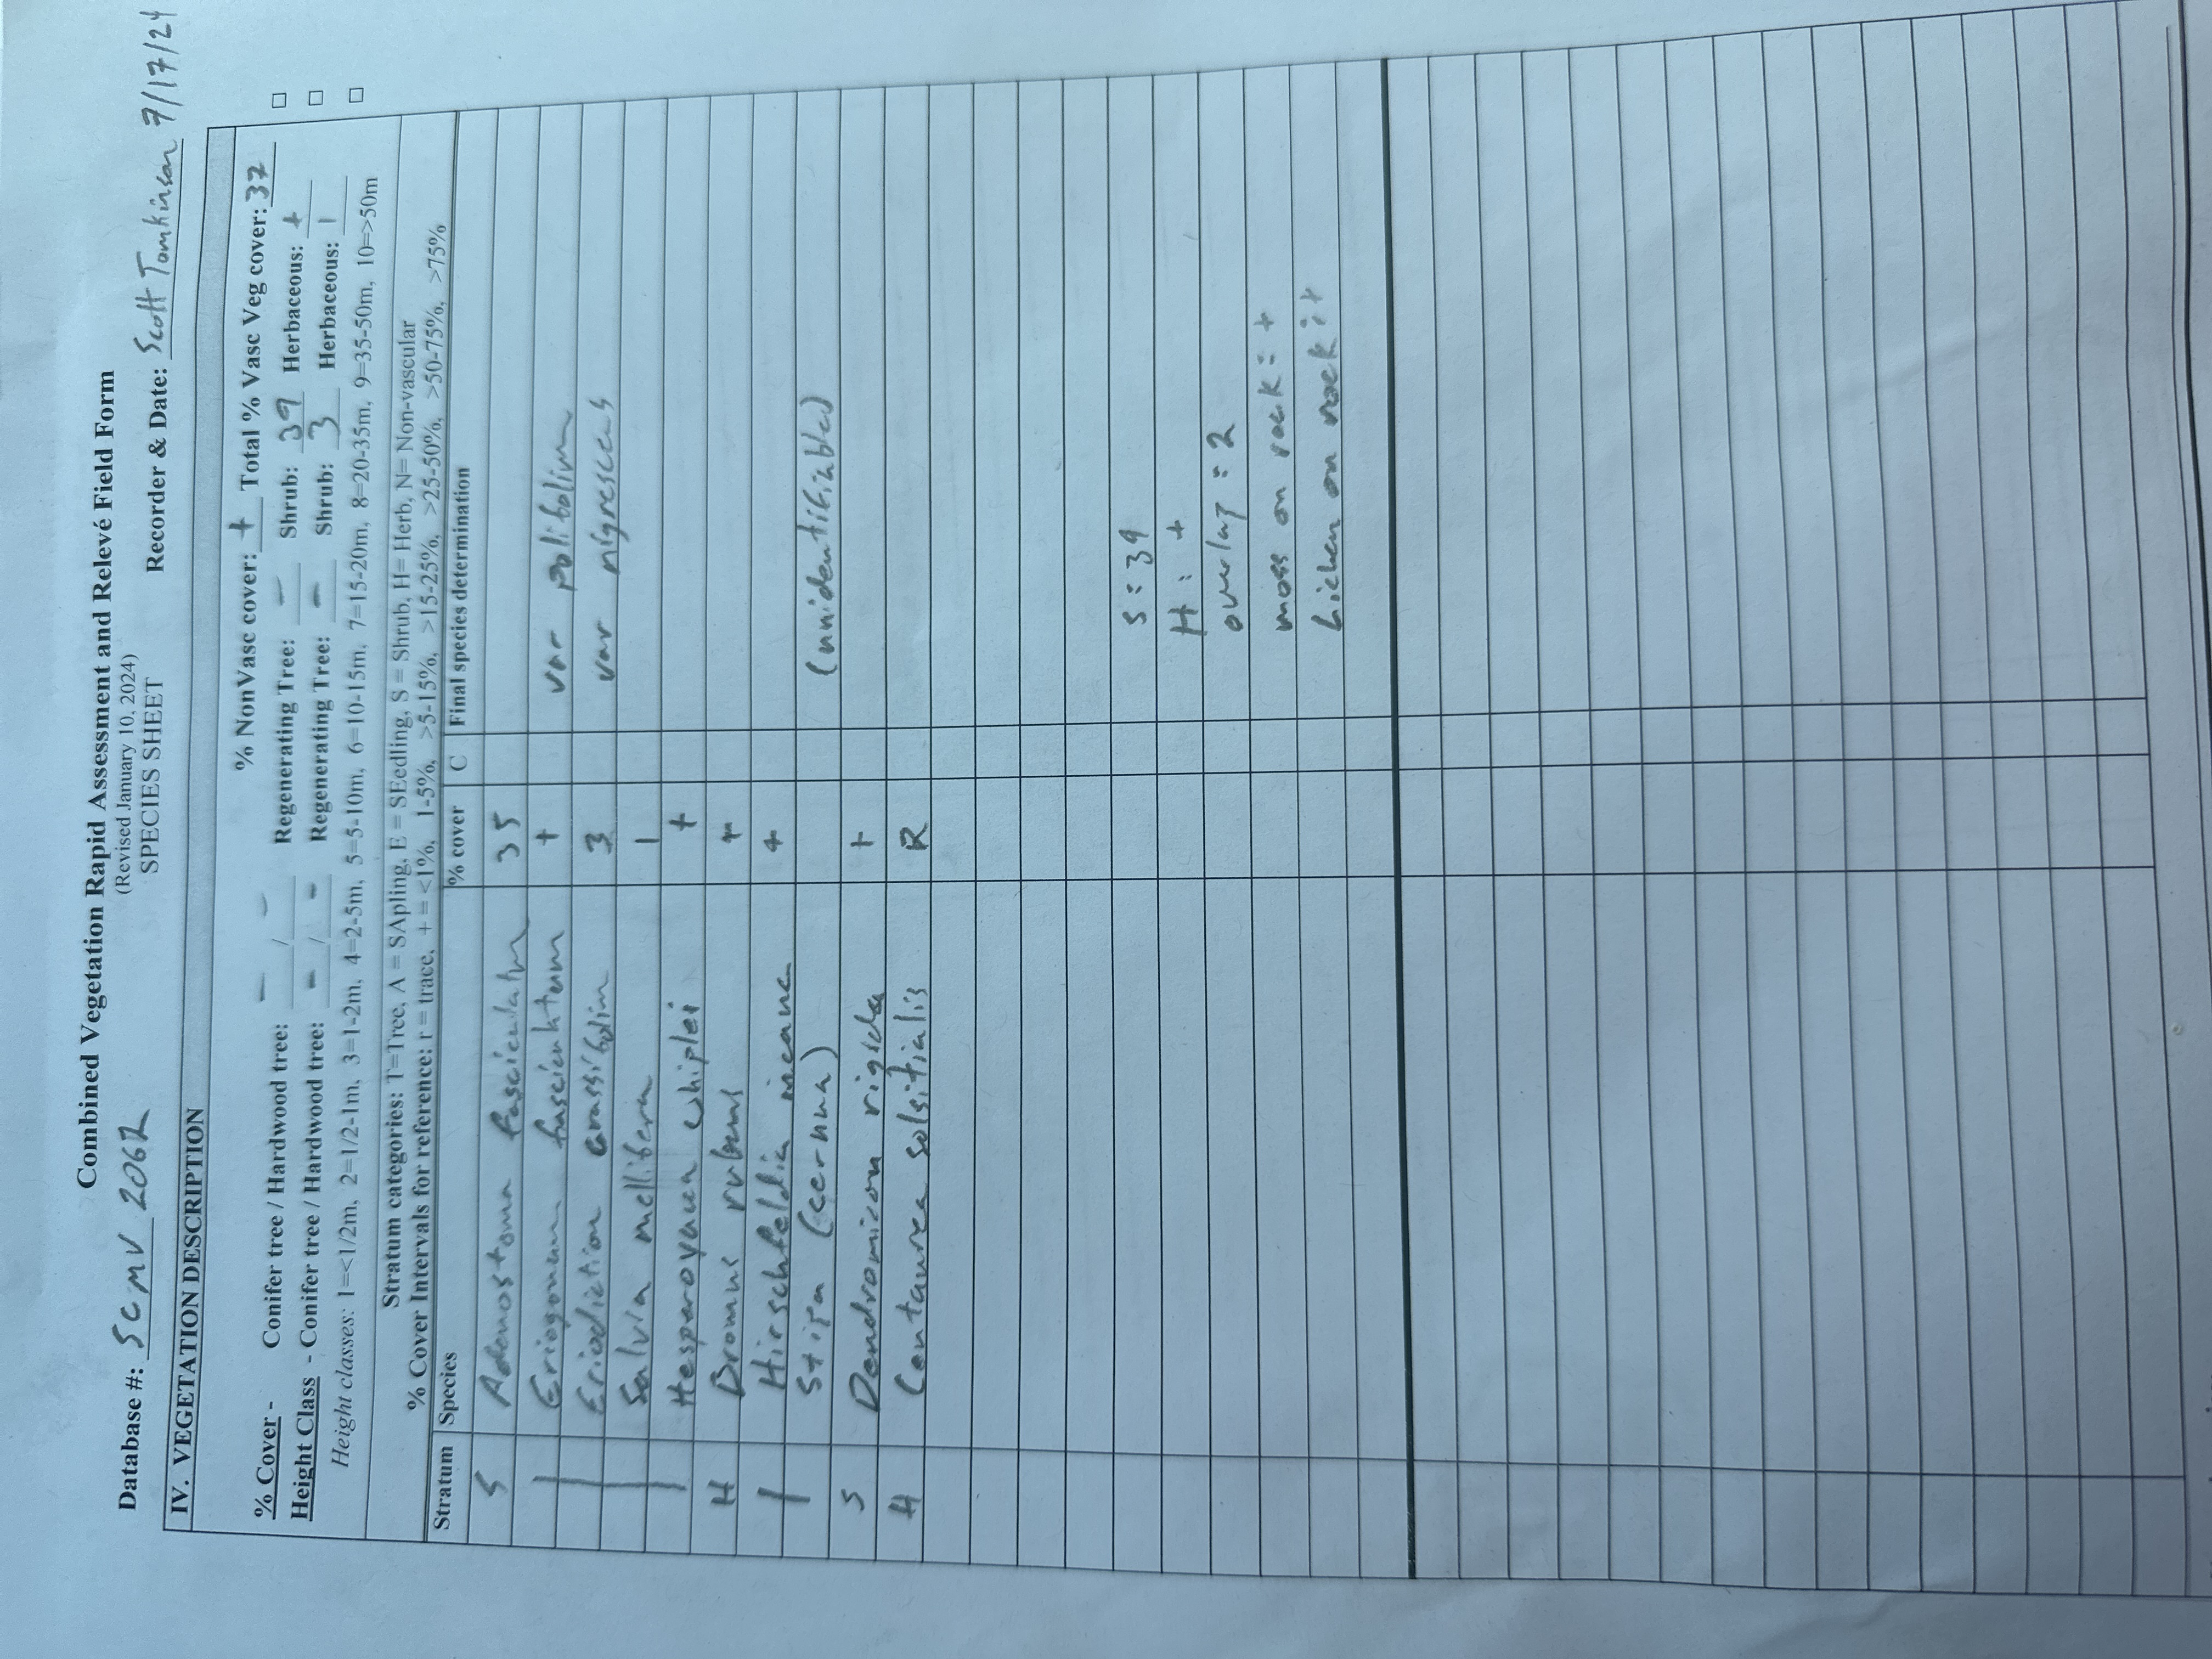 Combined Vegetation Rapid Assessment and Relevé Field Form
(Revised January 10, 2024)
SPECIES SHEET
Database #: SCMV 2062 Recorder & Date: Scott Tomkinson 7/17/24
IV. VEGETATION DESCRIPTION
% NonVasc cover: + Total % Vasc Veg cover: 37
% Cover - Conifer tree / Hardwood tree: — / — Regenerating Tree: — Shrub: 39 Herbaceous: + □
Height Class - Conifer tree / Hardwood tree: - / - Regenerating Tree: - Shrub: 3 Herbaceous: 1 □
Height classes: 1=<1/2m, 2=1/2-1m, 3=1-2m, 4=2-5m, 5=5-10m, 6=10-15m, 7=15-20m, 8=20-35m, 9=35-50m, 10=>50m □
Stratum categories: T=Tree, A = SApling, E = SEedling, S = Shrub, H= Herb, N= Non-vascular
% Cover Intervals for reference: r = trace, + = <1%, 1-5%, >5-15%, >15-25%, >25-50%, >50-75%, >75%
Stratum Species % cover C Final species determination
S Adenostoma fasciculatum 35
| Eriogonum fasciculatum + var polifolium
| Eriodiction crassifolium 3 var nigrescens
| Salvia mellifera 1
| Hesperoyucca whiplei +
H Bromus rubens +
| Hirschfeldia incana +
Stipa (cernua) (unidentifiable)
S Dendromicon rigida +
H Centaurea solstitialis R
S: 39
H: +
overlap: 2
moss on rock: +
Lichen on rock: +